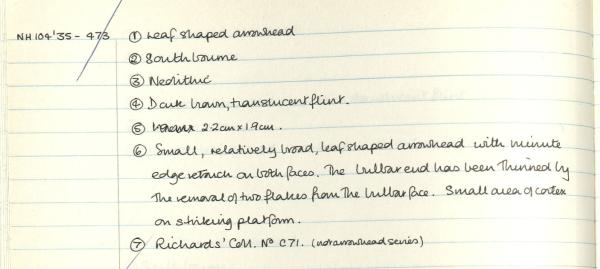 NH104'35-473 ① Leaf shaped arrowhead
② Southbourne
③ Neolithic
④ Dark brown, translucent flint.
⑤ 2.2cm x 1.9cm.
⑥ Small, relatively broad, leaf shaped arrowhead with minute
edge retouch on both faces. The bulbar end has been thinned by
the removal of two flakes from the bulbar face. Small area of cortex
on striking platform.
⑦ Richards' Coll. No C71. (not arrowhead series)